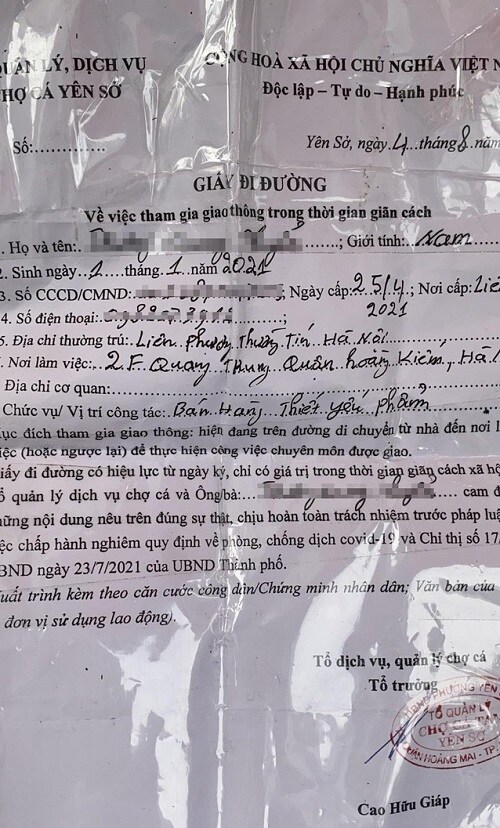 QUẢN LÝ, DỊCH VỤ
CỘNG HOÀ XÃ HỘI CHỦ NGHĨA VIỆT N
CHỢ CÁ YÊN SỞ
Độc lập – Tự do – Hạnh phúc
Số:...............
Yên Sở, ngày 4 tháng 8 năm
GIẤY ĐI ĐƯỜNG
Về việc tham gia giao thông trong thời gian giãn cách
1. Họ và tên: ; Giới tính: Nam
2. Sinh ngày 1 tháng 1 năm 2021
3. Số CCCD/CMND: ; Ngày cấp: 25/4 2021 ; Nơi cấp: Liê
4. Số điện thoại:
5. Địa chỉ thường trú: Liên Phương Thường Tín Hà Nội
. Nơi làm việc: 2.F. Quang Trung Quận hoàng Kiếm, Hà
Địa chỉ cơ quan:
Chức vụ/ Vị trí công tác: Bán Hàng Thiết yếu phẩm
ục đích tham gia giao thông: hiện đang trên đường di chuyển từ nhà đến nơi l
iệc (hoặc ngược lại) để thực hiện công việc chuyên môn được giao.
iấy đi đường có hiệu lực từ ngày ký, chỉ có giá trị trong thời gian giãn cách xã hộ
ổ quản lý dịch vụ chợ cá và Ông/bà: cam đ
hững nội dung nêu trên đúng sự thật, chịu hoàn toàn trách nhiệm trước pháp luậ
ệc chấp hành nghiêm quy định về phòng, chống dịch covid-19 và Chỉ thị số 17/
BND ngày 23/7/2021 của UBND Thành phố.
uất trình kèm theo căn cước công dân/Chứng minh nhân dân; Văn bản của
đơn vị sử dụng lao động).
Tổ dịch vụ, quản lý chợ cá
Tổ trưởng
PHƯỜNG YÊN
TỔ QUẢN LÝ
CHỢ CÁ
YÊN SỞ
QUẬN HOÀNG MAI - TP.
Cao Hữu Giáp